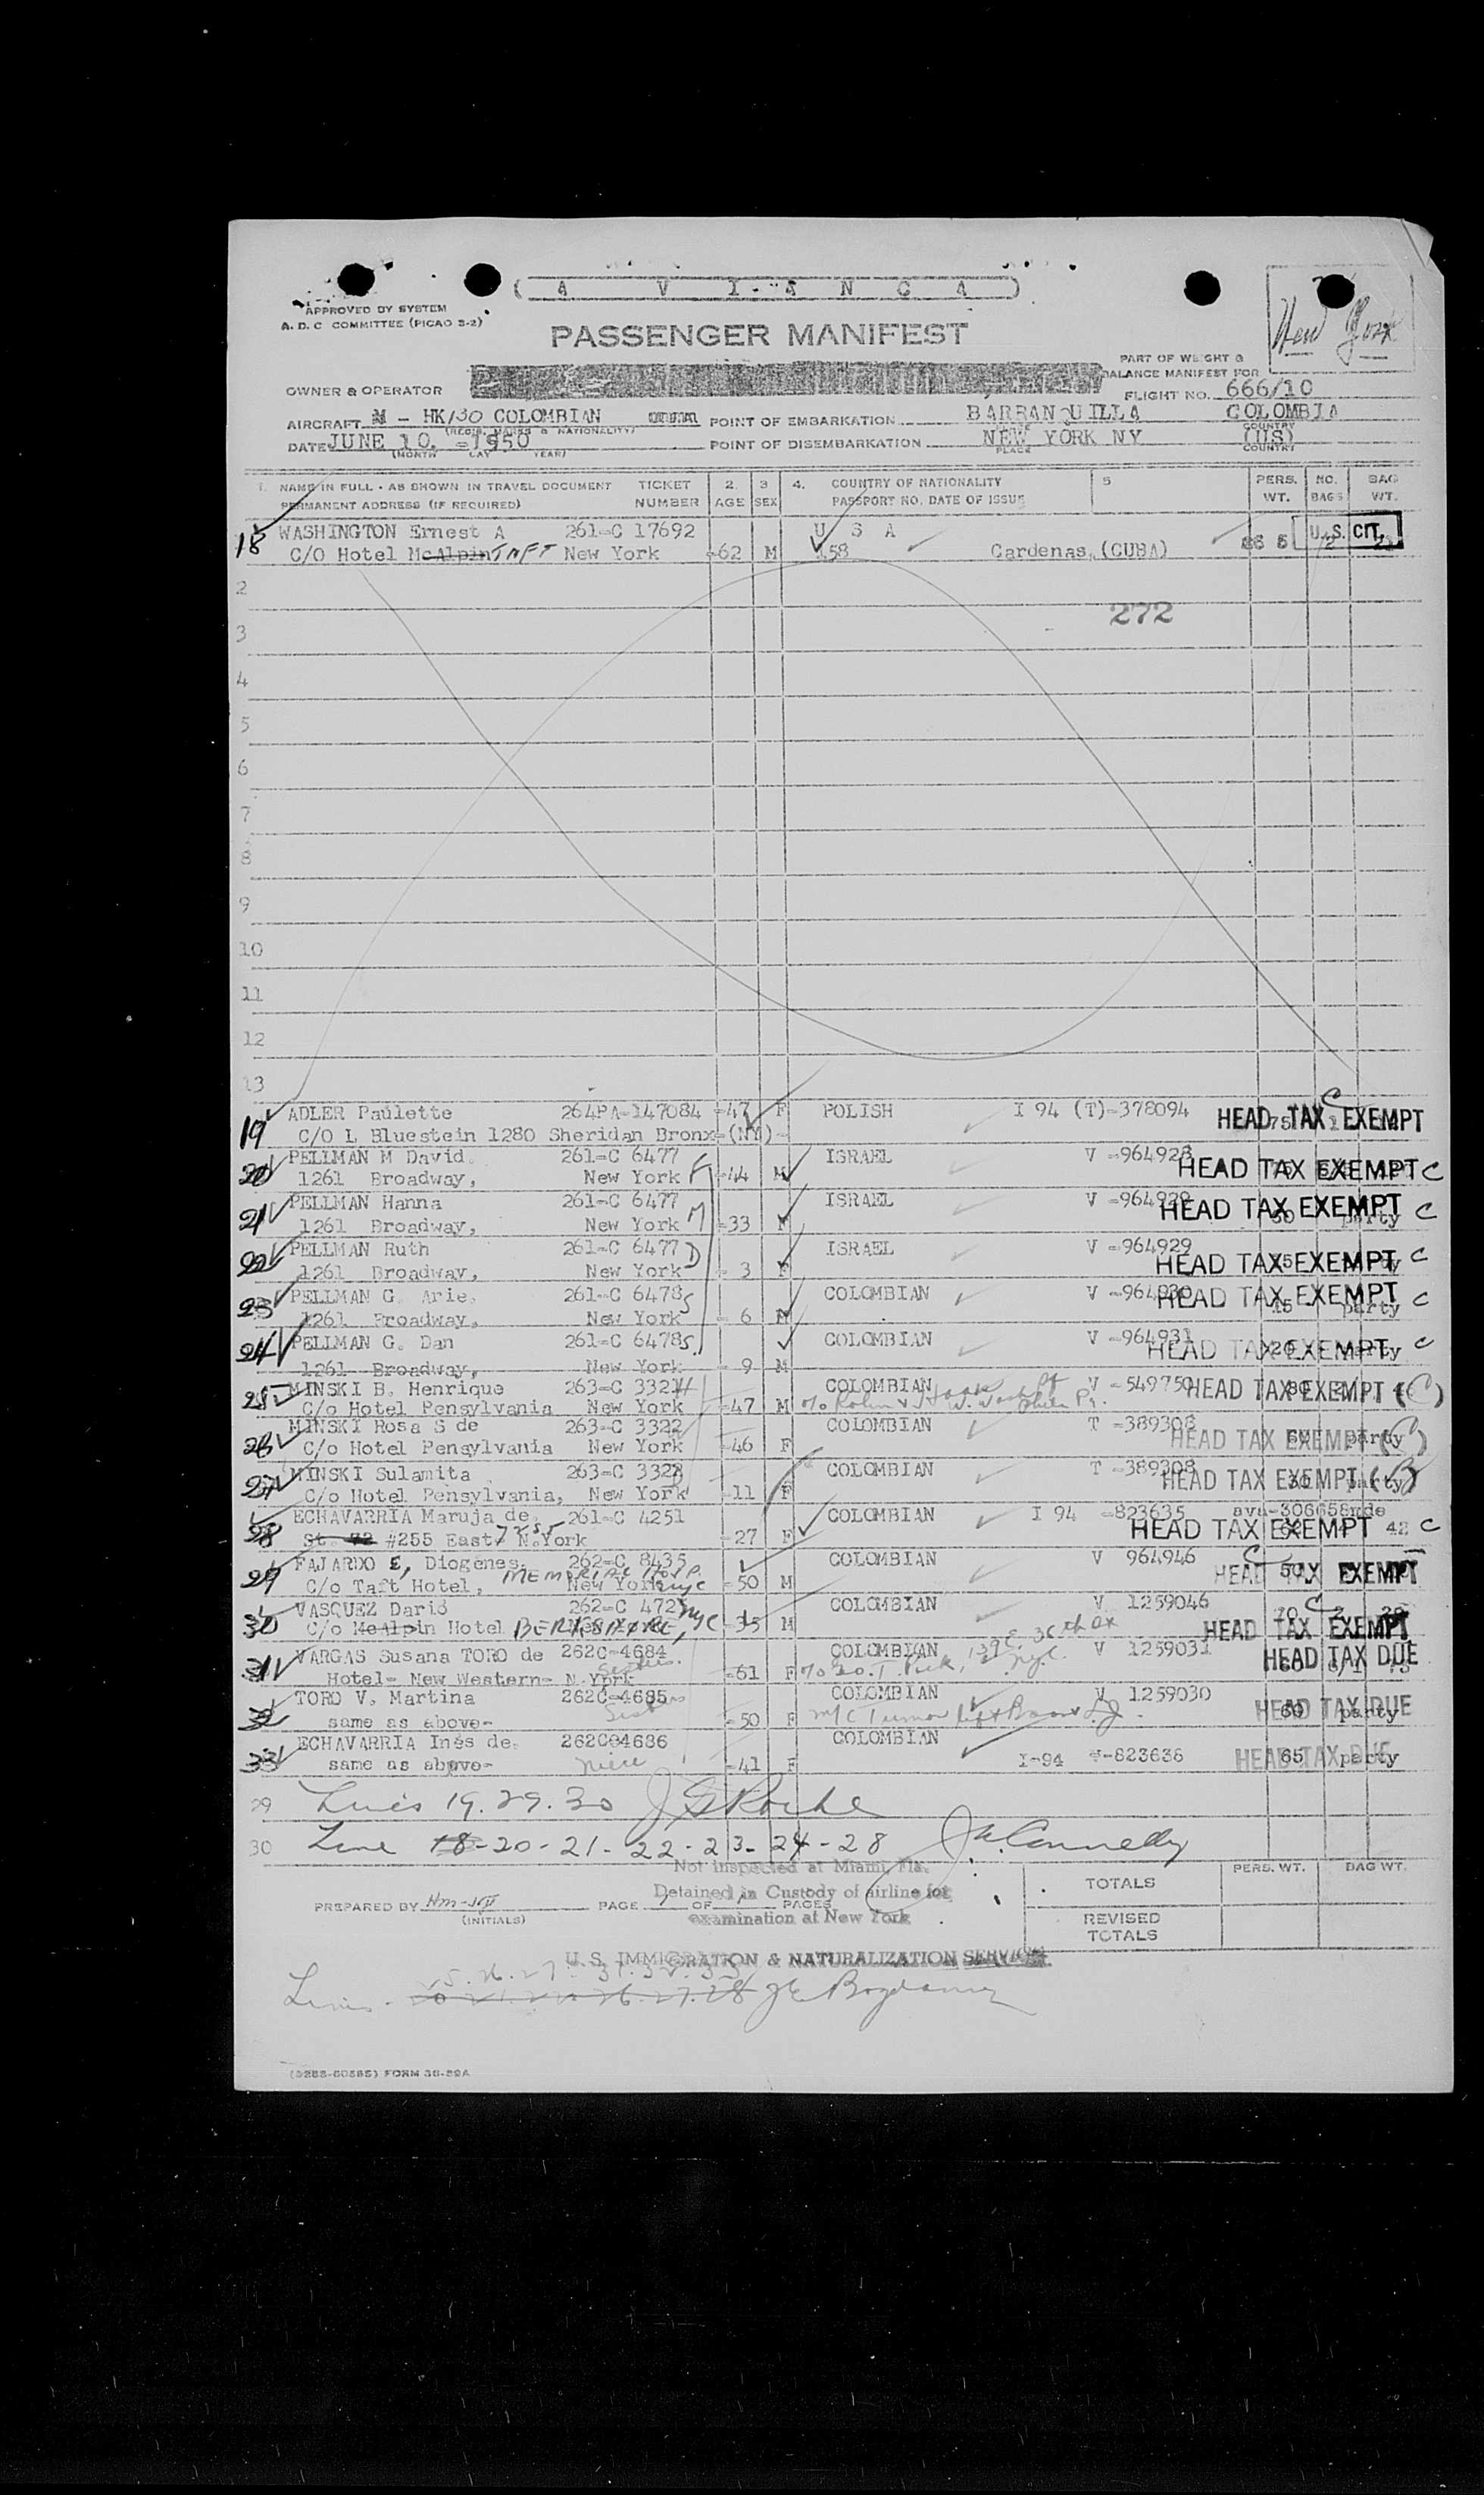 ( A V I A N C A )
APPROVED BY SYSTEM
A. D. C COMMITTEE (PICAO S-2)
PASSENGER MANIFEST
New York
PART OF WEIGHT &
BALANCE MANIFEST FOR
OWNER & OPERATOR
FLIGHT NO. 666/10
AIRCRAFT M - HK/130 COLOMBIAN POINT OF EMBARKATION BARRANQUILLA COLOMBIA
(REGIS. MARKS & NATIONALITY) COUNTRY
DATE JUNE 10 -1950 POINT OF DISEMBARKATION NEW YORK NY (US)
(MONTH DAY YEAR) PLACE COUNTRY
1. NAME IN FULL - AS SHOWN IN TRAVEL DOCUMENT TICKET 2. 3 4. COUNTRY OF NATIONALITY 5 PERS. NO. BAG
PERMANENT ADDRESS (IF REQUIRED) NUMBER AGE SEX PASSPORT NO. DATE OF ISSUE WT. BAGS WT.
18 WASHINGTON Ernest A 261-C 17692 U S A U.S. CIT.
C/O Hotel McAlpin TAFT New York -62 M 58 Cardenas, (CUBA)
2
272
3
4
5
6
7
8
9
10
11
12
13
19 ADLER Paulette 264PA-147084 -47 F POLISH I 94 (T)-378094 C
C/O L Bluestein 1280 Sheridan Bronx-(NY)- HEAD TAX EXEMPT
20 PELLMAN M David. 261-C 6477 ISRAEL V -964928
1261 Broadway, New York F -44 M HEAD TAX EXEMPT C
21 PELLMAN Hanna 261-C 6477 ISRAEL V -964929 HEAD TAX EXEMPT C
1261 Broadway, New York M -33 F party
22 PELLMAN Ruth 261-C 6477 D ISRAEL V -964929
1261 Broadway, New York - 3 F HEAD TAX EXEMPT C
23 PELLMAN G. Arie. 261-C 6478 S COLOMBIAN V -964930 HEAD TAX EXEMPT C
1261 Broadway, New York - 6 M 15 party
24 PELLMAN G. Dan 261-C 6478 S. COLOMBIAN V -964931
1261 Broadway, New York - 9 M HEAD TAX EXEMPT C
25 MINSKI B. Henrique 263-C 3321 H COLOMBIAN V -549750 HEAD TAX EXEMPT (C)
C/o Hotel Pensylvania New York -47 M
26 MINSKI Rosa S de 263-C 3322 COLOMBIAN T -389308
C/o Hotel Pensylvania New York -46 F HEAD TAX EXEMPT (C)
27 MINSKI Sulamita 263-C 3323 COLOMBIAN T -389308
C/o Hotel Pensylvania, New York -11 F HEAD TAX EXEMPT
28 ECHAVARRIA Maruja de. 261-C 4251 COLOMBIAN I 94 -823635
St. 72 #255 East N.York -27 F HEAD TAX EXEMPT 42 C
29 FAJARDO E, Diogenes. 262-C 8435 COLOMBIAN V 964946 C
C/o Taft Hotel, MEMORIAL HOSP. New York NYC -50 M HEAD TAX EXEMPT
30 VASQUEZ Dario 262-C 4725 COLOMBIAN V 1259046
C/o McAlpin Hotel BERKSHIRE, NYC -35 M HEAD TAX EXEMPT
31 VARGAS Susana TORO de 262C-4684 COLOMBIAN V 1259031 HEAD TAX DUE
Hotel- New Western- N.York -61 F
32 TORO V. Martina 262C-4685 COLOMBIAN V 1259030 HEAD TAX DUE
same as above- -50 F party
33 ECHAVARRIA Inés de. 262C04686 COLOMBIAN HEAD TAX DUE
same as above- niece -41 F I-94 -823638 65 party
29 Lines 19. 29. 30
30 Line 18-20-21-22-23-24-28 Connelly
Not inspected at Miami, Fla. PERS. WT. BAG WT.
Detained in Custody of airline for TOTALS
PREPARED BY PAGE OF PAGES
(INITIALS) examination at New York REVISED
TOTALS
U.S. IMMIGRATION & NATURALIZATION SERVICE
25. 26. 27. 31. 32. 33
Lines
FORM 36-89A